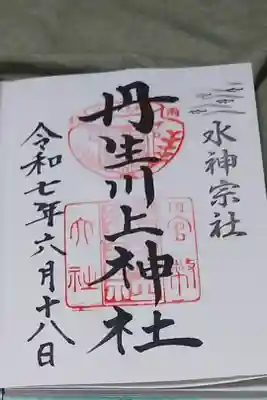 水神宗社
丹生川上神社
令和七年六月十八日
官幣
大社